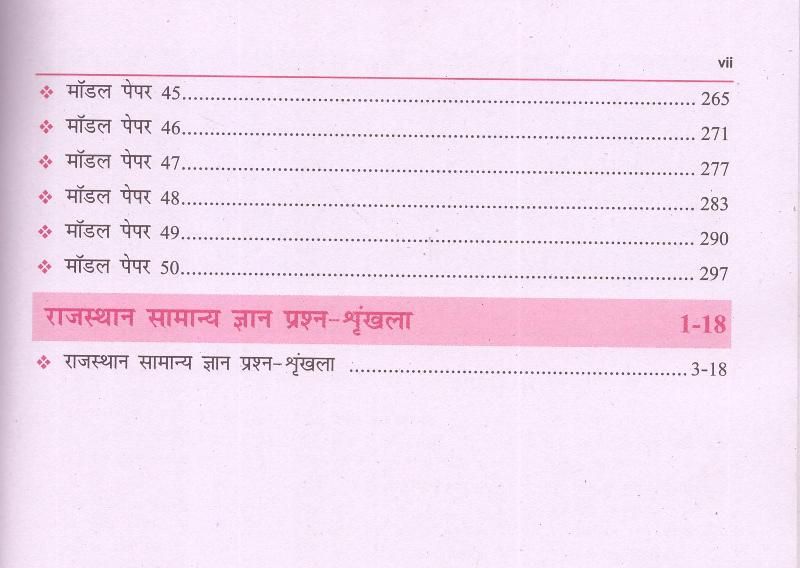 vii
❖ मॉडल पेपर 45 265
❖ मॉडल पेपर 46 271
❖ मॉडल पेपर 47 277
❖ मॉडल पेपर 48 283
❖ मॉडल पेपर 49 290
❖ मॉडल पेपर 50 297
राजस्थान सामान्य ज्ञान प्रश्न-शृंखला 1-18
❖ राजस्थान सामान्य ज्ञान प्रश्न-शृंखला 3-18